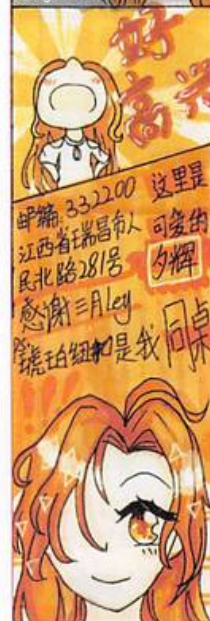 好
高兴
邮编:332200
江西省瑞昌市人
民北路281号
感谢三月ley
琥珀纽扣是我同桌
这里是
可爱的
夕辉